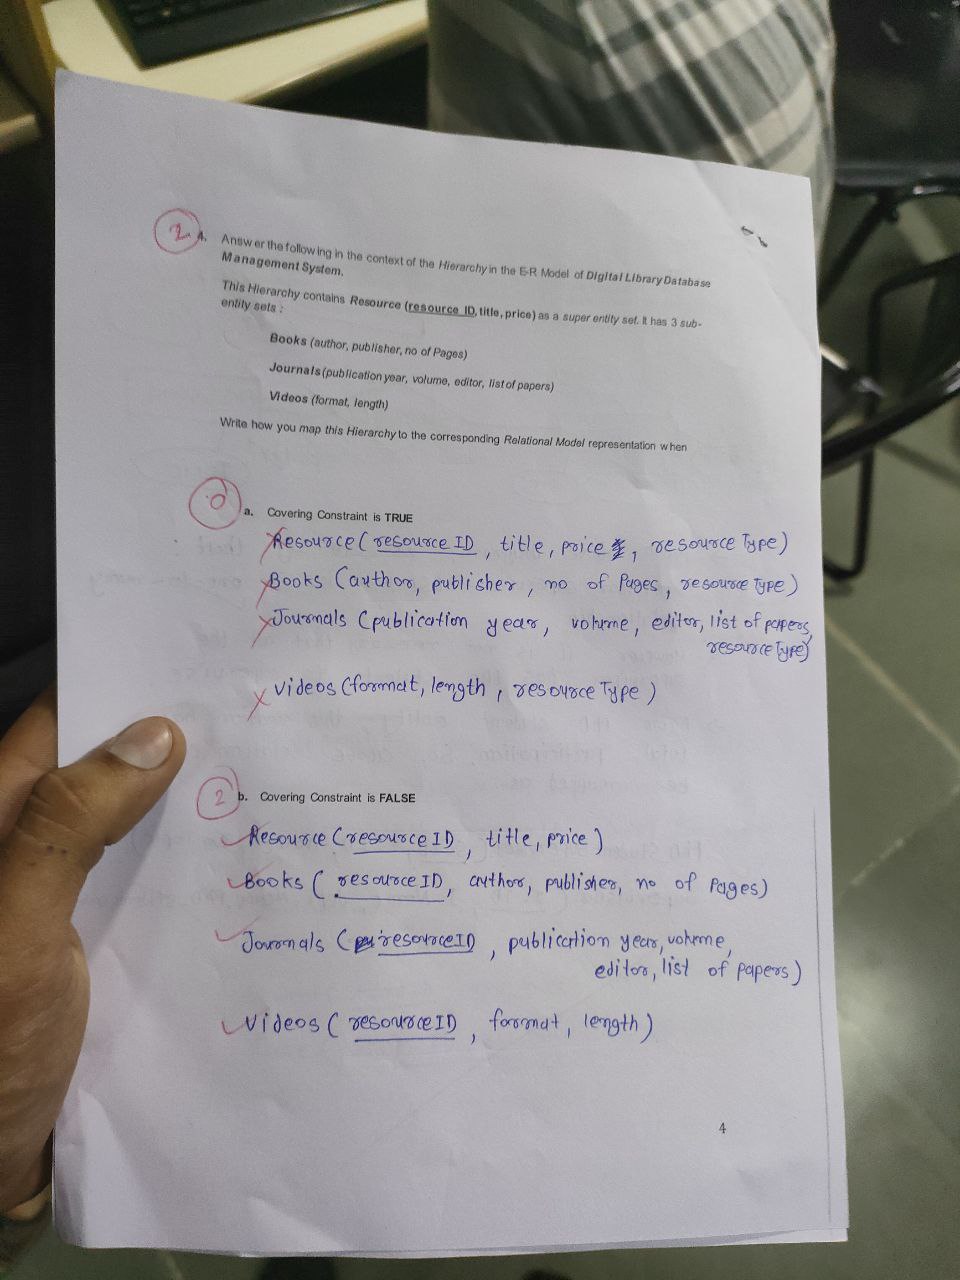 2
4. Answer the following in the context of the Hierarchy in the E-R Model of Digital Library Database
Management System.
This Hierarchy contains Resource (resource_ID, title, price) as a super entity set. It has 3 sub-
entity sets :
Books (author, publisher, no of Pages)
Journals (publication year, volume, editor, list of papers)
Videos (format, length)
Write how you map this Hierarchy to the corresponding Relational Model representation when
0
a. Covering Constraint is TRUE
Resource ( resource ID, title, price, resource Type)
Books (author, publisher, no of Pages, resource Type)
Journals (publication year, volume, editor, list of papers,
resource Type)
Videos (format, length, resource Type)
2
b. Covering Constraint is FALSE
Resource (resource ID, title, price)
Books ( resource ID, author, publisher, no of Pages)
Journals ( resource ID, publication year, volume,
editor, list of papers)
Videos ( resource ID, format, length)
4